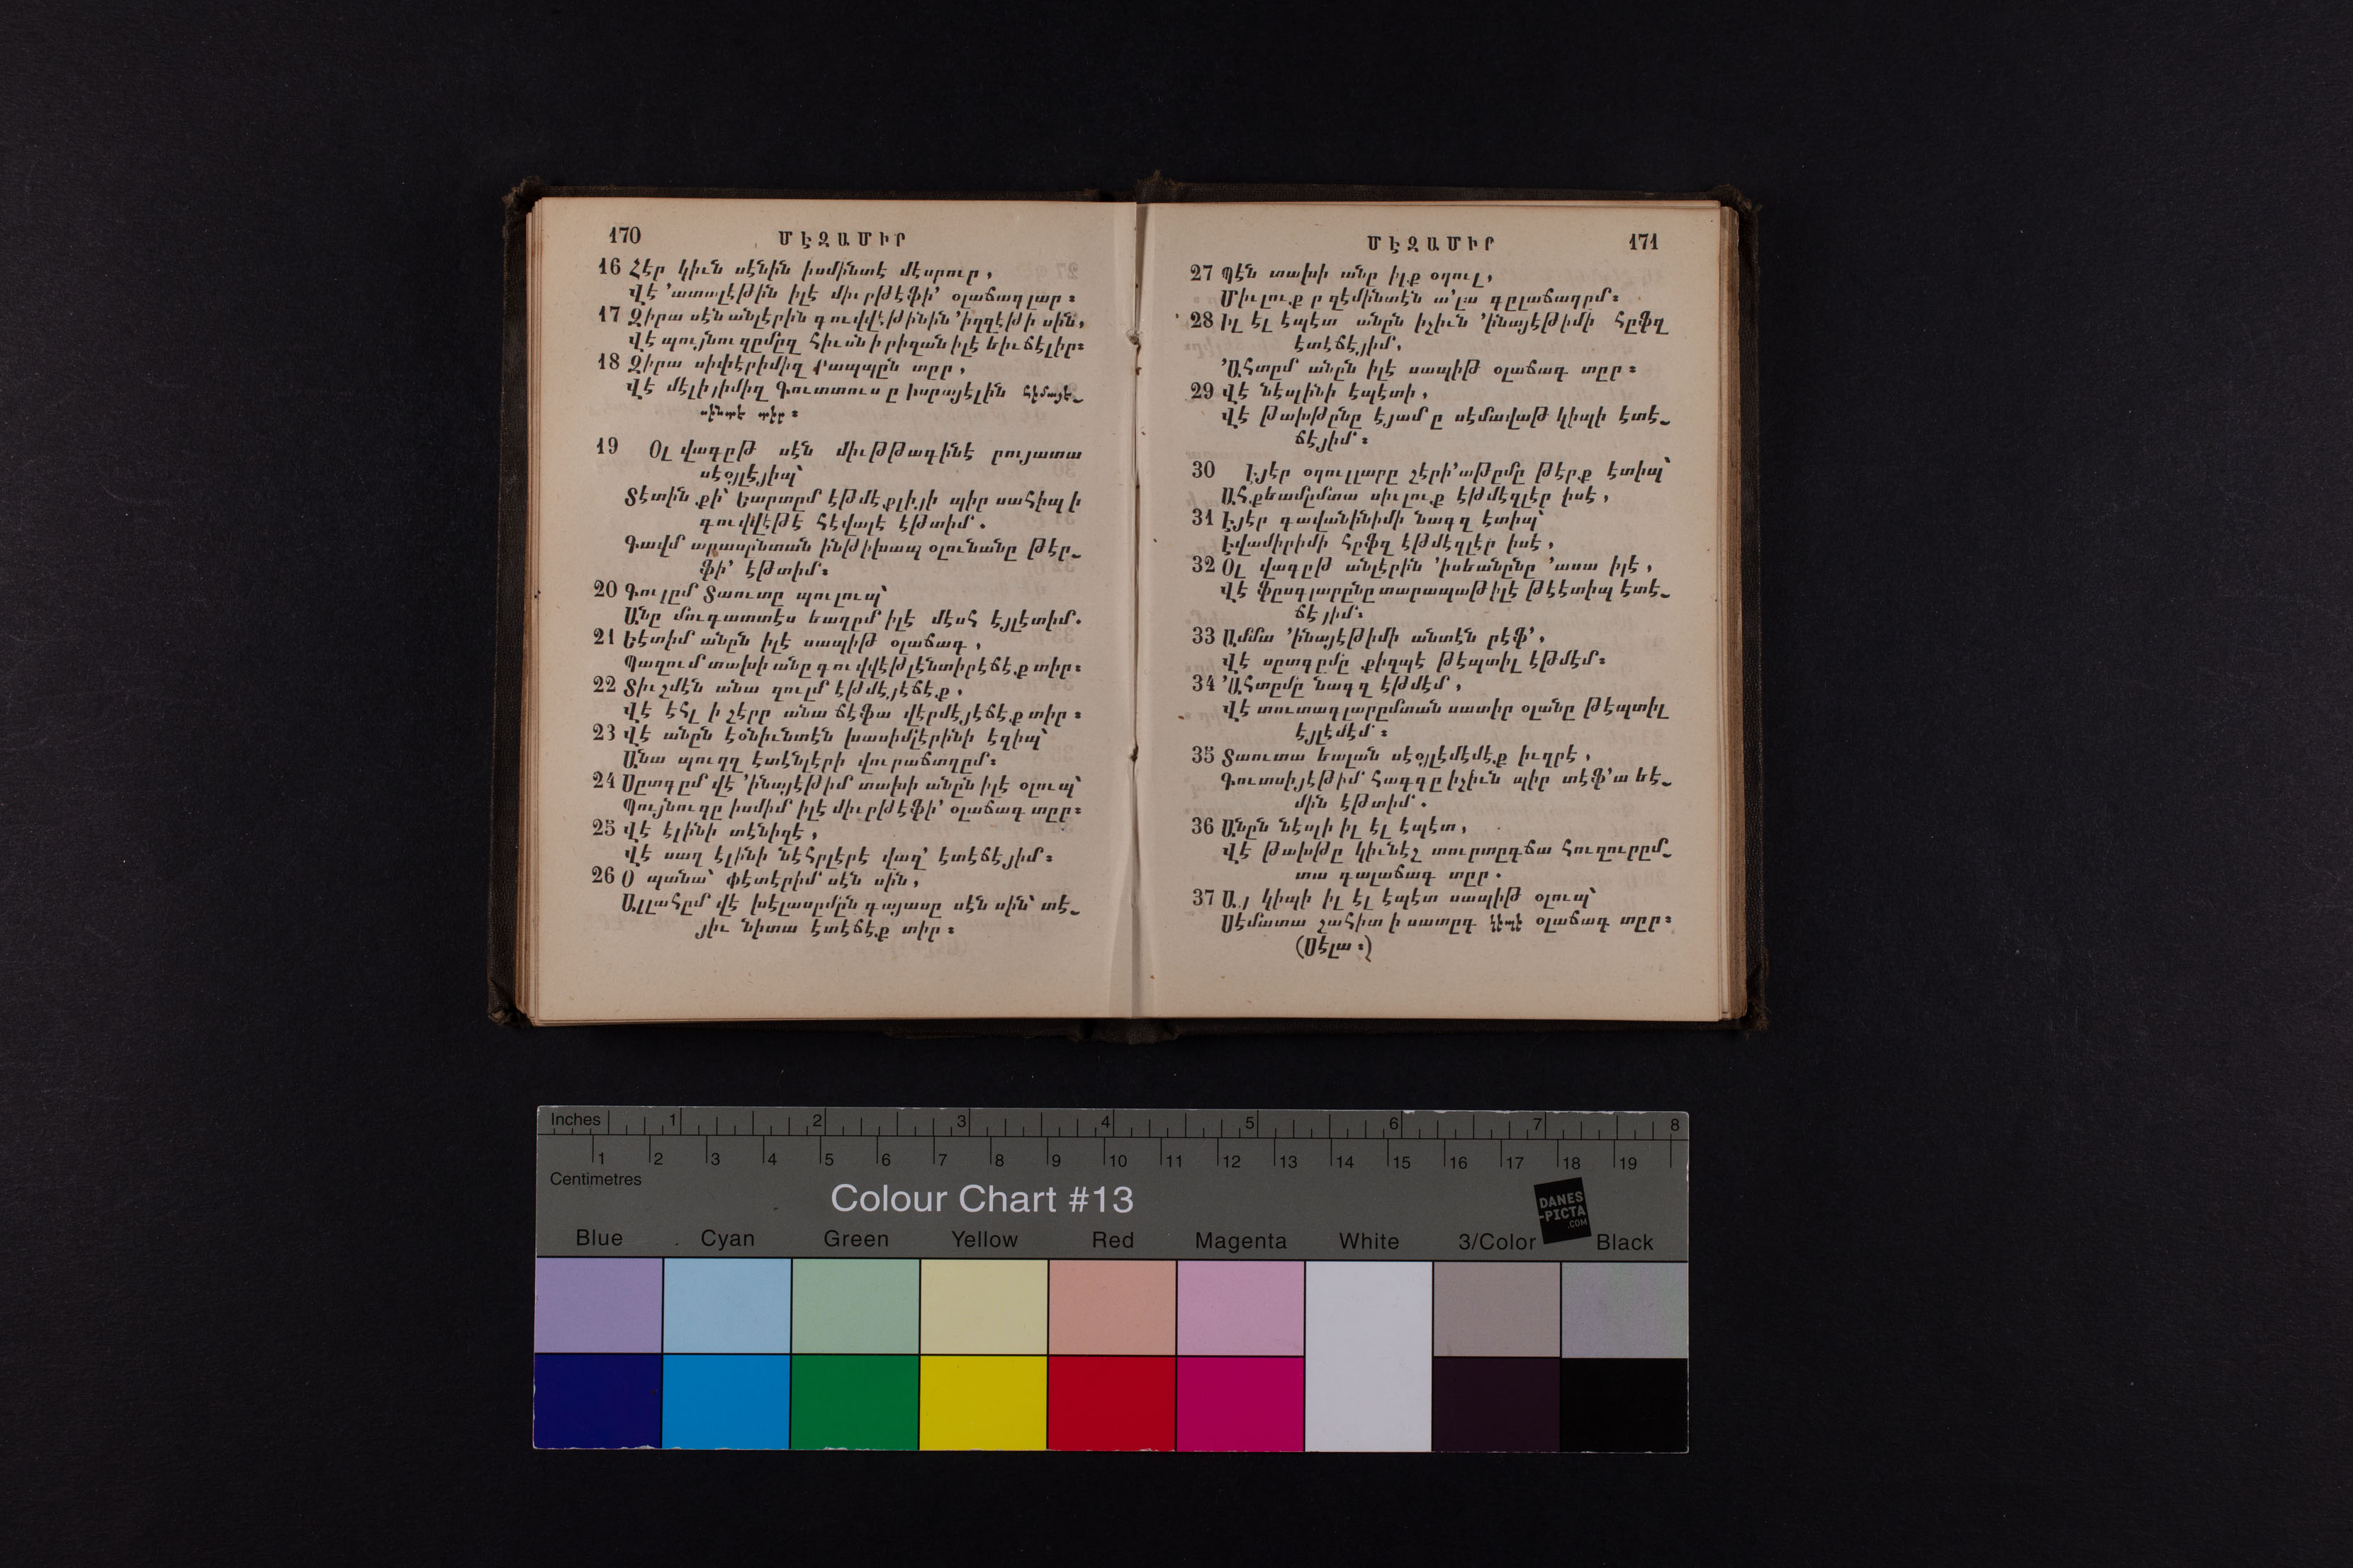 170 ՄԷԶԱՄԻՐ
16 Հէր կիւն սէնին իսմինտէ մէսրուր,
Վէ ՚ատալէթին իլէ միւրթէֆի՚ օլաճաղլար։
17 Զիրա սէն անլէրին գուվվէթինին ՚իզզէթի սին,
Վէ պույնուզըմըզ հիւսնի րիզան իլէ եիւճէլիր։
18 Զիրա սիփէրիմիզ Րապպըն տըր,
Վէ մէլիյիմիզ Գուտտուսը Իսրայէլին հիմայե֊
սինտե տիր։
19 Օլ վագըթ սէն միւթթագինէ րույատա
սէօյլէյիպ՝
Տէտին քի՝ Եարտըմ էթմէքլիյի պիր սահիպի
գուվվէթէ հէվալէ էթտիմ.
Գավմ արասընտան ինթիխապ օլունանը թէր֊
ֆի՚ էթտիմ։
20 Գուլըմ Տաուտը պուլուպ՝
Անը մուգատտէս եաղըմ իլէ մէսհ էյլէտիմ.
21 Եէտիմ անըն իլէ սապիթ օլաճագ,
Պազում տախի անը գուվվէթլէնտիրէճէք տիր։
22 Տիւշմէն անա զուլմ էթմէյէճէք,
Վէ էհլի շէրր անա ճէֆա վէրմէյէճէք տիր։
23 Վէ անըն էօնիւնտէն խասիմլէրինի էզիպ՝
Անա պուղզ էտէնլէրի վուրաճտղըմ։
24 Սըտգըմ վէ ՚ինայէթիմ տախի անըն իլէ օլուպ՝
Պույնուզը իսմիմ իլէ միւրթէֆի՚ օլաճագ տըր։
25 Վէ էլինի տէնիզէ,
Վէ սաղ էլինի նէհրլէրէ վազ՚ էտէճէյիմ։
26 Օ պանա՝ Փէտէրիմ սէն սին,
Ալլահըմ վէ խէլասըմըն գայասը սէն սին՝ տէ֊
յիւ նիտա էտէճէք տիր։
ՄԷԶԱՄԻՐ 171
27 Պէն տախի անը իլք օղուլ,
Միւլուքըրզէմինտէն ա՚լա գըլաճաղըմ։
28 Իլ էլ էպէտ անըն իչիւն ՚ինայէթիմի հըֆզ
էտէճէյիմ,
՚Ահտըմ անըն իլէ սապիթ օլաճագ տըր։
29 Վէ նէսլինի էպէտի,
Վէ թախթընը էյամը սէմավաթ կիպի էտէ֊
ճէյիմ։
30 Էյէր օղուլլարը շէրի՚աթըմը թէրք էտիպ՝
Ահքեամըմտա սիւլուք էթմէզլէր իսէ,
31 Էյէր գավանինիմի նագզ էտիպ՝
Էվամիրիմի հըֆզ էթմէզլէր իսէ,
32 Օլ վագըթ անլէրին ՚իսեանընը ՚ասա իլէ,
Վէ ֆըսգլարընը տարապաթ իլէ թէէտիպ էտէ֊
ճէյիմ։
33 Ամմա ՚ինայէթիմի անտէն րէֆ՚,
Վէ սըտգըմը քիզպէ թէպտիլ էթմէմ։
34 ՚Ահտըմը նագզ էթմէմ,
Վէ տուտագլարըմտան սատիր օլանը թէպտիլ
էյլէմէմ։
35 Տաուտա եալան սէօյլէմէմէք իւզրէ,
Գուտսիյէթիմ հագգը իչիւն պիր տէֆ՚ա եէ֊
մին էթտիմ.
36 Անըն նէսլի իլ էլ էպէտ,
Վէ թախթը կիւնէշ տուրտըգճա հուզուրըմ֊
տա գալաճագ տըր.
37 Այ կիպի իլ էլ էպէտ սապիթ օլուպ՝
Սէմատա շահիտի սատըգ կիպի օլաճագ տըր։
(Սէլա։)
Inches 1 2 3 4 5 6 7 8
1 2 3 4 5 6 7 8 9 10 11 12 13 14 15 16 17 18 19
Centimetres
Colour Chart #13
DANES
-PICTA
.COM
Blue Cyan Green Yellow Red Magenta White 3/Color Black